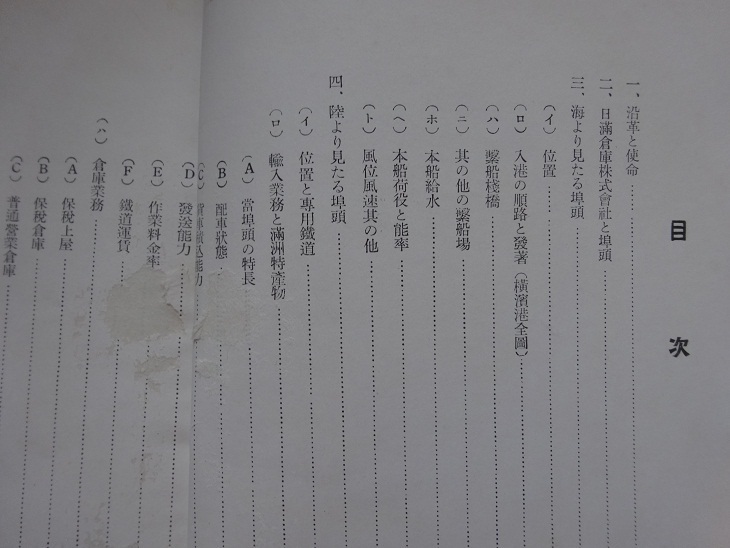 目次
一、沿革と使命……
二、日滿倉庫株式會社と埠頭……
三、海より見たる埠頭……
(イ) 位置……
(ロ) 入港の順路と發著(橫濱港全圖)……
(ハ) 繫船棧橋……
(ニ) 其の他の繫船場……
(ホ) 本船給水……
(ヘ) 本船荷役と能率……
(ト) 風位風速其の他……
四、陸より見たる埠頭……
(イ) 位置と專用鐵道……
(ロ) 輸入業務と滿洲特產物……
(A) 當埠頭の特長……
(B) 配車狀態……
(C) 貨車積込能力
(D) 發送能力……
(E) 作業料金率……
(F) 鐵道運賃……
(ハ) 倉庫業務……
(A) 保稅上屋……
(B) 保稅倉庫……
(C) 普通營業倉庫……